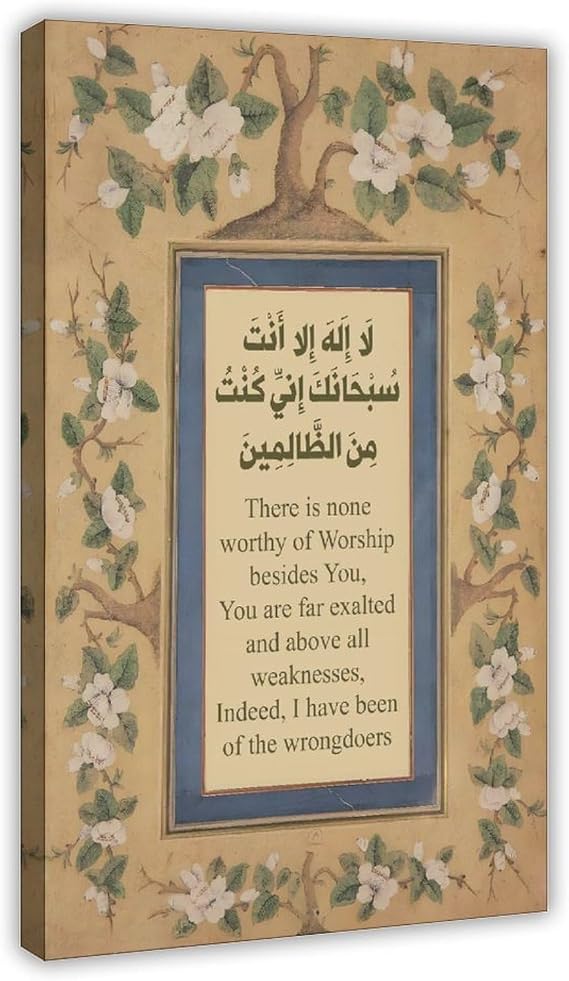 لَا إِلَهَ إِلا أَنْتَ
سُبْحَانَكَ إِنِّي كُنْتُ
مِنَ الظَّالِمِينَ
There is none
worthy of Worship
besides You,
You are far exalted
and above all
weaknesses,
Indeed, I have been
of the wrongdoers